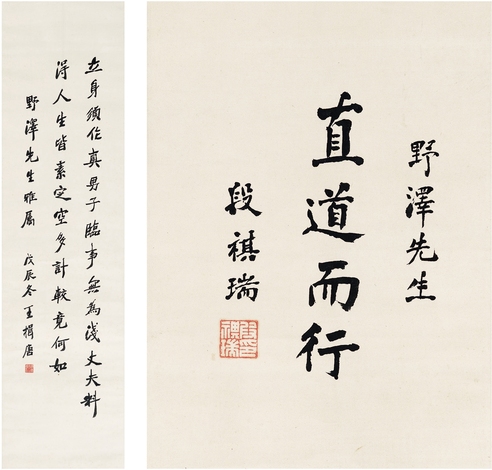 立身須作真男子臨事無為淺丈夫料
得人生皆素定空多計較竟何如
野澤先生雅屬 戊辰冬王揖唐
野澤先生
直道而行
段祺瑞
段印祺瑞